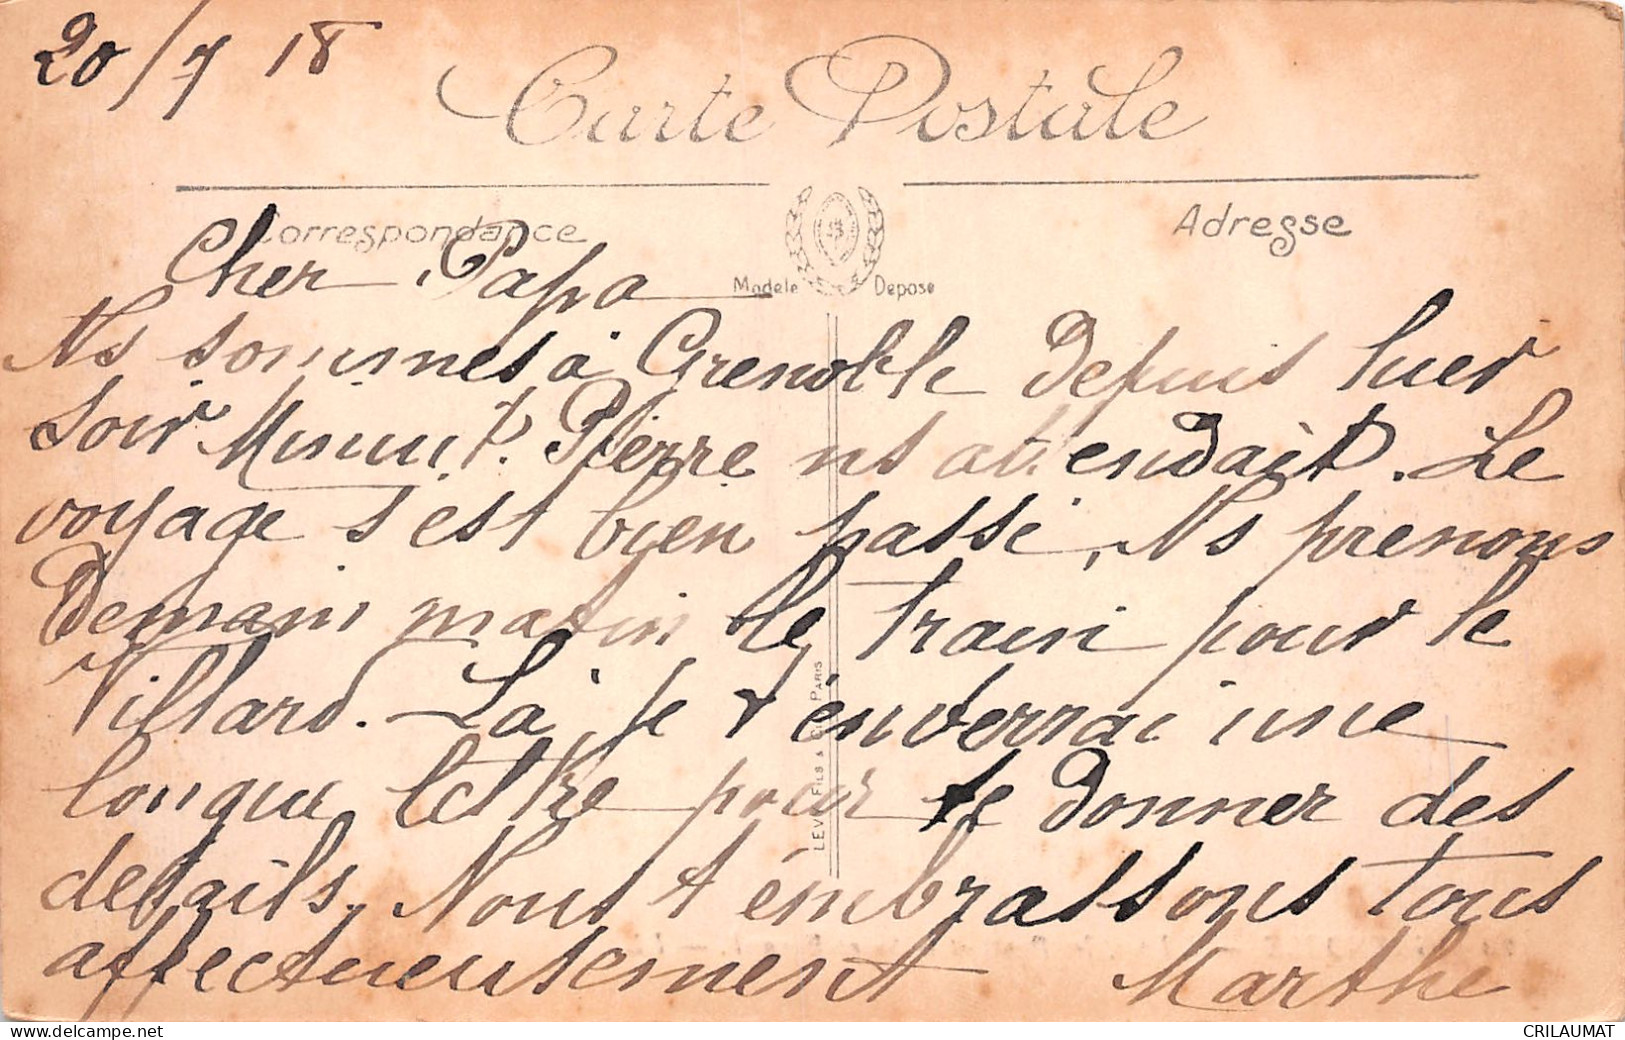 20/7 18
Carte Postale
Correspondance
Adresse
Modele Depose
Cher Papa
Ns sommes à Grenoble depuis hier
soir Minuit. Pierre ns attendait. Le
voyage s'est bien passé, Ns prenons
demain matin le train pour le
Villard. Là je t'enverrai une
longue lettre pour te donner des
details. Nous t'embrassons tous
affectueusement Marthe
LEVY FILS & Cie PARIS
CRILAUMAT